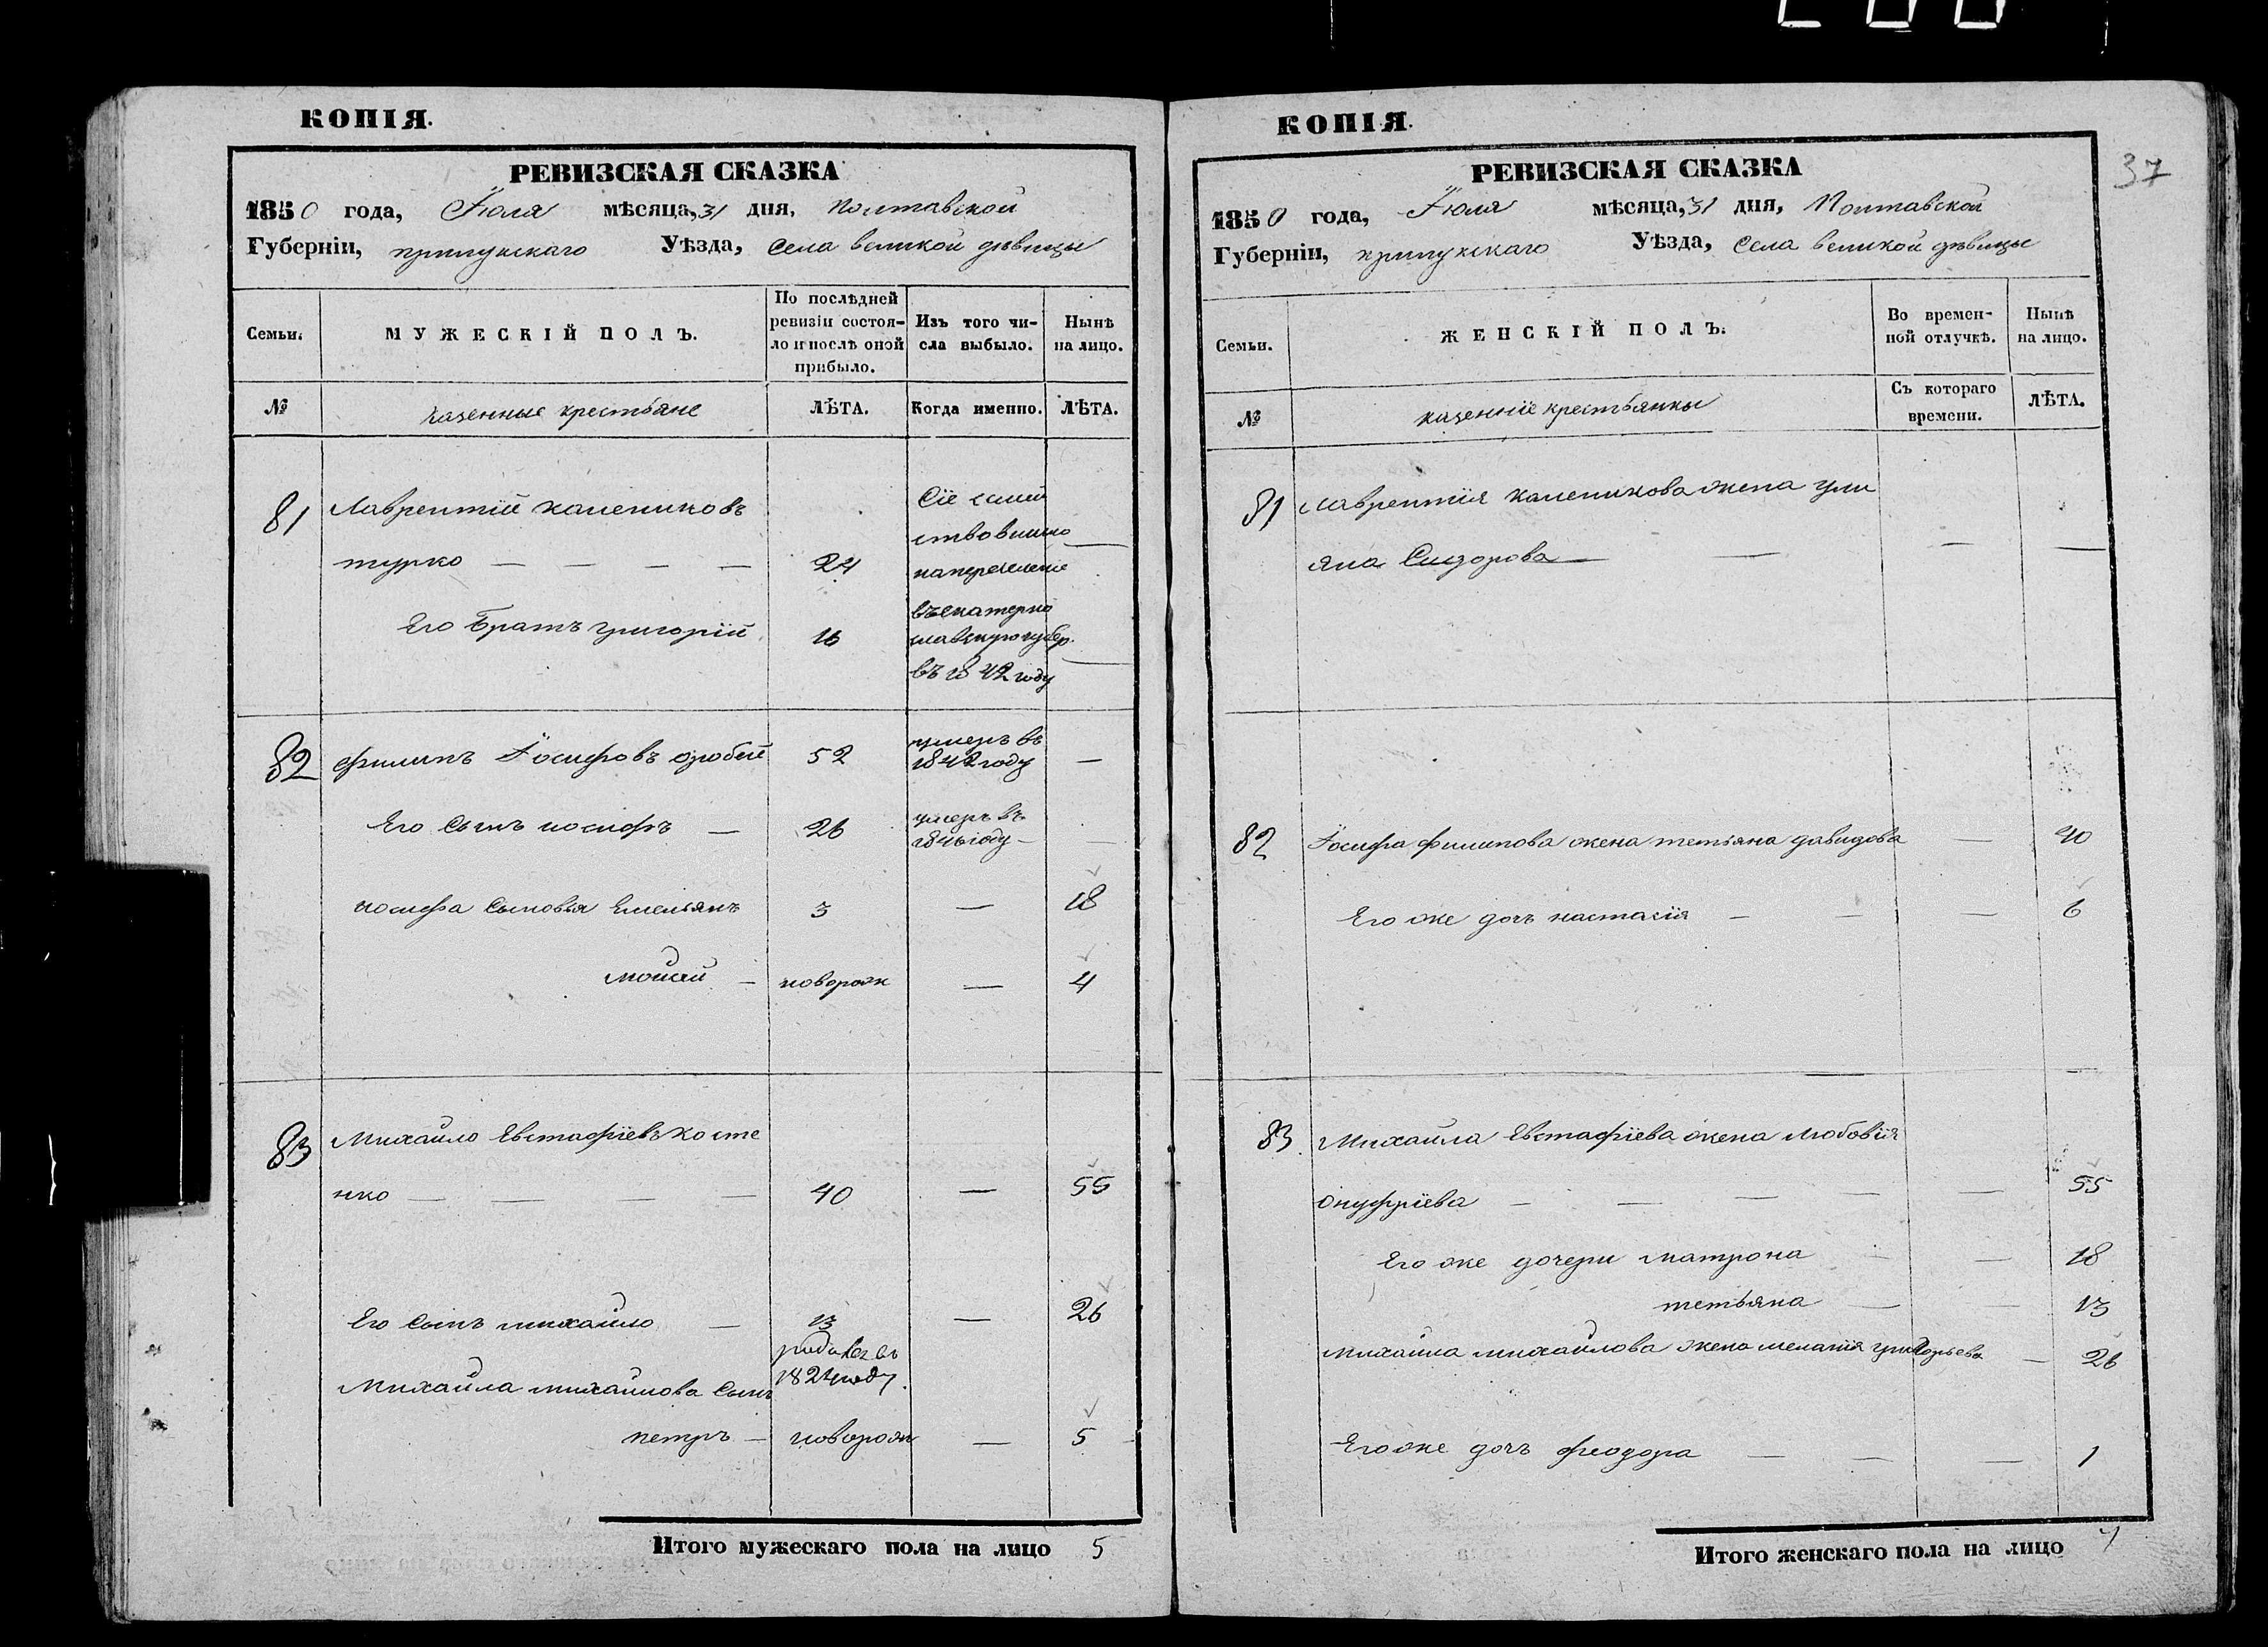 КОПІЯ.
РЕВИЗСКАЯ СКАЗКА
1850 года, Іюля мѣсяца, 31 дня, полтавской
Губерніи, прилукскаго Уѣзда, Села великой дѣвицы
Семьи.
МУЖЕСКІЙ ПОЛЪ.
По послѣдней
ревизіи состоя-
ло и послѣ оной
прибыло.
Изъ того чи-
сла выбыло.
Нынѣ
на лицо.
№
казенные крестьяне
ЛѢТА.
Когда именно.
ЛѢТА.
81
Лаврентій калениковъ
турко — — — —
24
Его Братъ григорій
16
Сіе семей
ство вышло
на переселеніе
въ екатерино
славскую губер.
въ 1842 году
82
филипъ Іосифовъ оробей
52
умеръ въ
1842 году
—
Его Сынъ иосифъ —
26
умеръ въ
1846 году —
—
иосифа Сыновья Емельянъ
3
—
18
мойсей —
наворож
—
4
83
Михайло Евстафіевъ косте
нко — — — —
40
—
55
Его Сынъ михайло —
13
—
26
родився въ
1824 году.
Михайла михайлова Сынъ
петръ —
новорож
—
5
Итого мужескаго пола на лицо 5
КОПІЯ.
37
РЕВИЗСКАЯ СКАЗКА
1850 года, Іюля мѣсяца, 31 дня, Полтавской
Губерніи, прилукскаго Уѣзда, Села великой дѣвицы
Семьи.
ЖЕНСКІЙ ПОЛЪ.
Во времен-
ной отлучкѣ.
Нынѣ
на лицо.
№
казенніе крестьянкы
Съ котораго
времени.
ЛѢТА.
81
лаврентія каленикова жена ули
яна Сидорова — —
—
—
82
Іосифа филипова жена тетьяна давидова
—
40
Его же дочъ настасія — —
—
6
83.
Михайла Евстафіева жена любовія
Онуфріева — — — —
—
55
Его же дочери матрона —
—
18
тетьяна —
—
13
михайла михайлова жена меланія григорьева
—
26
Его же дочъ феодора — —
—
1
Итого женскаго пола на лицо 7